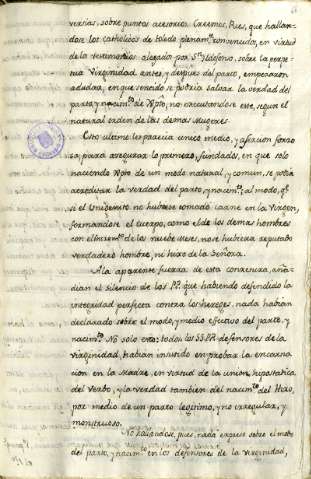 versias, sobre puntos acesorios. Creemos, Pues, que hallan-
dose los catholicos de toledo plenam.te convencidos, en virtud
de los testimonios alegados por S.n Ildefonso, sobre la perpe-
tua Virginidad antes, y despues del parto, empezaron
a dudar, en que sentido se podria salvar la verdad del
parto, y nacim.to de Xpto, no executandose este, segun el
natural orden de las demas Mugeres.
Esto ultimo les parecia unico medio, y asercion forzo
sa, para asegurar lo primero, fundados, en que solo
naciendo Xpto de un modo natural, y comun, se podia
acreditar la verdad del parto, y nacim.to al modo, q.e
si el Unigenito no hubiese tomado carne en la Virgen,
formandose el cuerpo, como el de los demas hombres
con el increm.to de los nueve meses, no se hubiera reputado
verdadero hombre, ni hixo de la Señora.
A la aparente fuerza de esta congetura, aña-
dian el silencio de los PP. que habiendo defendido la
integridad perfecta contra los hereges, nada habian
declarado sobre el modo, y medio efectivo del parto, y
nacim.to No solo esto; todos los SS. PP. defensores de la
virginidad, habian insistido en probar la encarna
cion en la Madre, en virtud de la union hipostatica
del Verbo, y la verdad tambien del nacim.to del Hixo,
por medio de un parto legitimo, y no irregular, y
monstruoso.
No hallandose, pues, nada expreso sobre el modo
del parto, y nacim.to en los defensores de la virginidad,